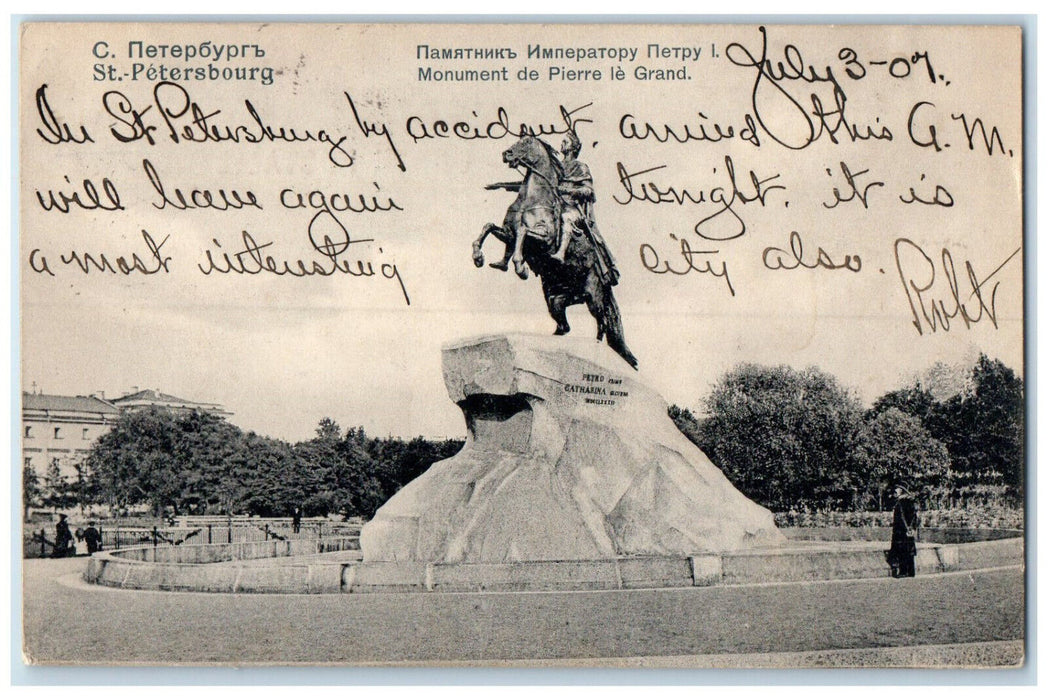 С. Петербургъ
St.-Pétersbourg
Памятникъ Императору Петру I.
Monument de Pierre lè Grand.
July 3-07.
In St Petersburg by accident, arrived this A.M,
will leave again tonight. it is
a most intensting city also. Robt
PETRO primo
CATHARINA SECUNDA
MDCCLXXXII